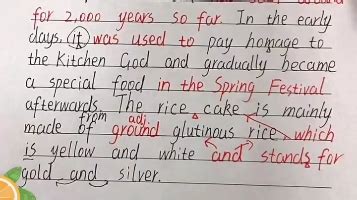 for 2,000 years so far. In the early
days, it was used to pay homage to
the Kitchen God and gradually became
a special food in the Spring Festival
afterwards. The rice cake is mainly
from adj.
made of ground glutinous rice, which
is yellow and white and stands for
gold and silver.